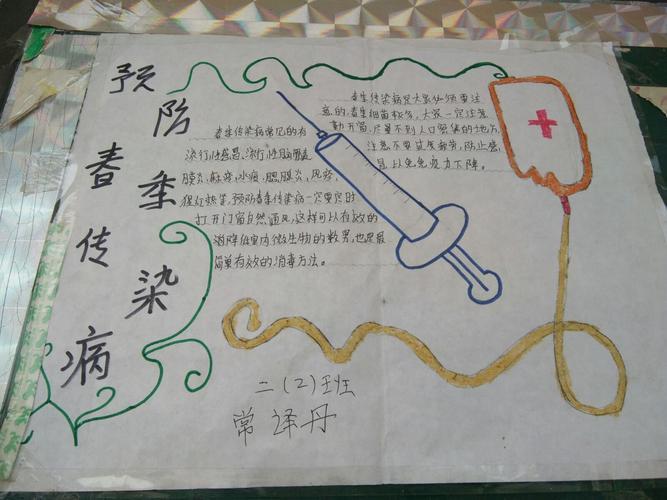 预防春季传染病
春季传染病常见的有
流行性感冒、流行性脑脊髓
膜炎、麻疹、水痘、腮腺炎、风疹、
猩红热等,预防春季传染病一定要定时
打开门窗自然通风,这样可以有效的
降低室内微生物的数量,也是最
简单有效的消毒方法。
春季传染病是大家必须要注
意的,春季细菌较多,大家一定注意
勤开窗,尽量不到人口密集的地方,
注意不要过度疲劳,防止感
冒以免免疫力下降。
二(2)班
常译丹